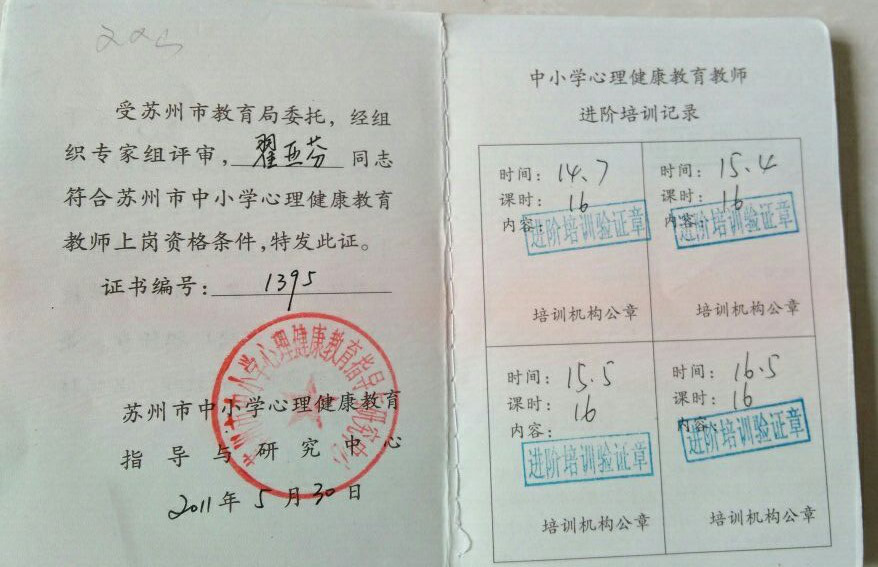 受苏州市教育局委托，经组
织专家组评审，翟亚芬同志
符合苏州市中小学心理健康教育
教师上岗资格条件，特发此证。
证书编号：1395
苏州市中小学心理健康教育
指导与研究中心
2011年5月30日
中小学心理健康教育教师
进阶培训记录
时间：14.7
课时：16
内容：
进阶培训验证章
培训机构公章
时间：15.4
课时：16
内容：
进阶培训验证章
培训机构公章
时间：15.5
课时：16
内容：
进阶培训验证章
培训机构公章
时间：16.5
课时：16
内容：
进阶培训验证章
培训机构公章